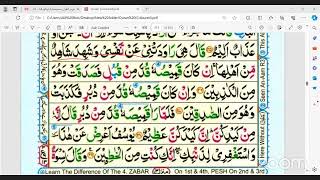 عَذَابٌ اَلِيْمٌ قَالَ هِىَ رَاوَدَتْنِىْ عَنْ نَّفْسِىْ وَشَهِدَ شَاهِدٌ
مِّنْ اَهْلِهَا اِنْ كَانَ قَمِيْصُهٗ قُدَّ مِنْ قُبُلٍ فَصَدَقَتْ وَهُوَ
مِنَ الْكٰذِبِيْنَ وَاِنْ كَانَ قَمِيْصُهٗ قُدَّ مِنْ دُبُرٍ فَكَذَبَتْ
وَهُوَ مِنَ الصّٰدِقِيْنَ فَلَمَّا رَاٰ قَمِيْصَهٗ قُدَّ مِنْ دُبُرٍ قَالَ اِنَّهٗ
مِنْ كَيْدِكُنَّ اِنَّ كَيْدَكُنَّ عَظِيْمٌ يُوْسُفُ اَعْرِضْ عَنْ هٰذَا
وَاسْتَغْفِرِىْ لِذَنْۢبِكِ اِنَّكِ كُنْتِ مِنَ الْخٰطِـِٕيْنَ وَقَالَ نِسْوَةٌ
Learn The Difference Of The 4. ZABAR On 1st & 4th, PESH On 2nd & 3rd